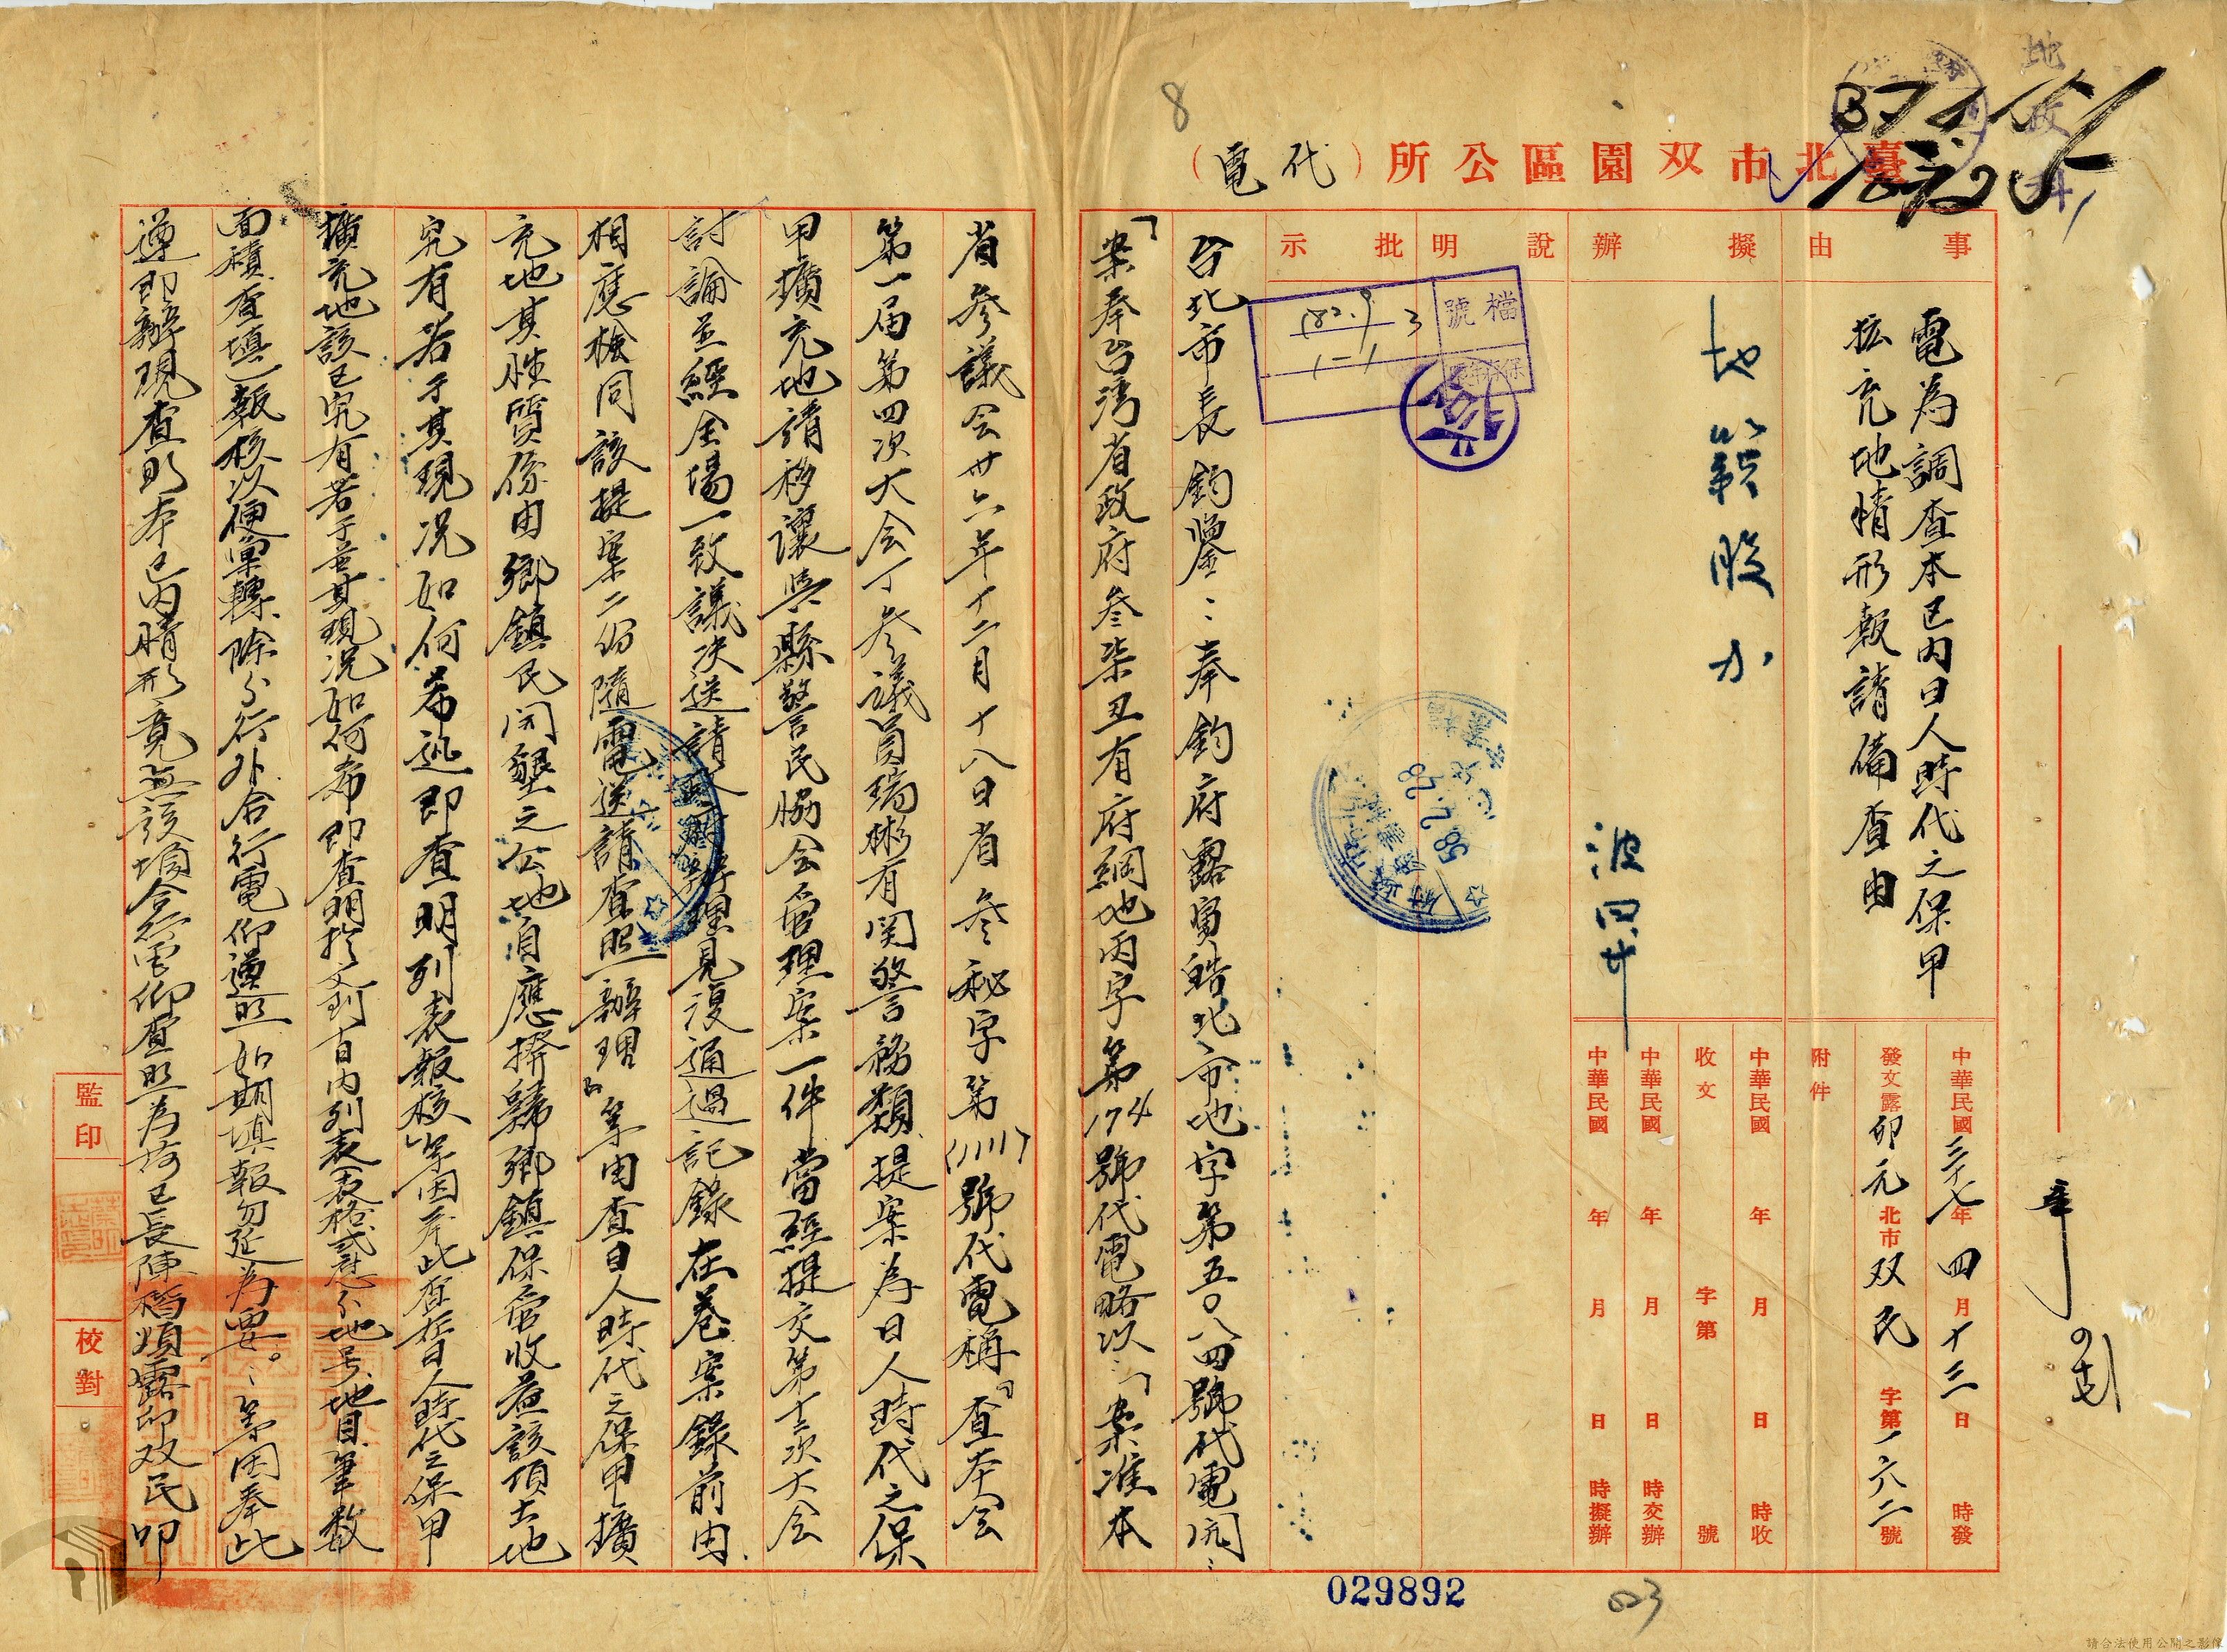 臺北市双園區公所（代電）
地政科
8
事由
電為調查本區内日人時代之保甲
拡充地情形報請備查由
擬辦
地籍股办
說明
批示
檔號
182.9
3
1-1
中華民國三十七年四月十三日時發
發文露卯元北市双民字第一六六二號
附件
中華民國年月日時收
收文字第號
中華民國年月日時交辦
中華民國年月日時擬辦
台北市長鈞鑒：奉鈞府露寅皓北市地字第五〇八四號代電開：
「案奉台湾省政府叁柒丑有府綱地丙字第174號代電略以：「案准本
省參議会卅六年十二月十八日省參秘字第(1111)號代電稱『查本会
第一届第四次大会丁參議員瑞彬有関警務類提案為日人時代之保
甲擴充地請移讓與縣警民協会管理案一件當經提交第十三次大会
討論並經全場一致議决送請政府辦理見復通過記錄在卷案錄前由
相應檢同該提案二份隨電送請查照辦理』等由查日人時代之保甲擴
充地其性質係由鄉鎮民開墾之公地自應撥歸鄉鎮保管收益該項土地
究有若干其現况如何希迅即查明列表報核」等因奉此查本區日人時代之保甲
擴充地該區究有若干並其現况如何希即查明於文到五日内列表(表格式悉)地号地目筆数
面積查填報核以便彙轉除分行外合行電仰遵照如期填報勿延為要。：等因奉此
遵即辦現查明本區内情形竟無該塲合行電仰查照為荷區長陳楷煩露卯双民叩
監印
校對
029892
58.2.28